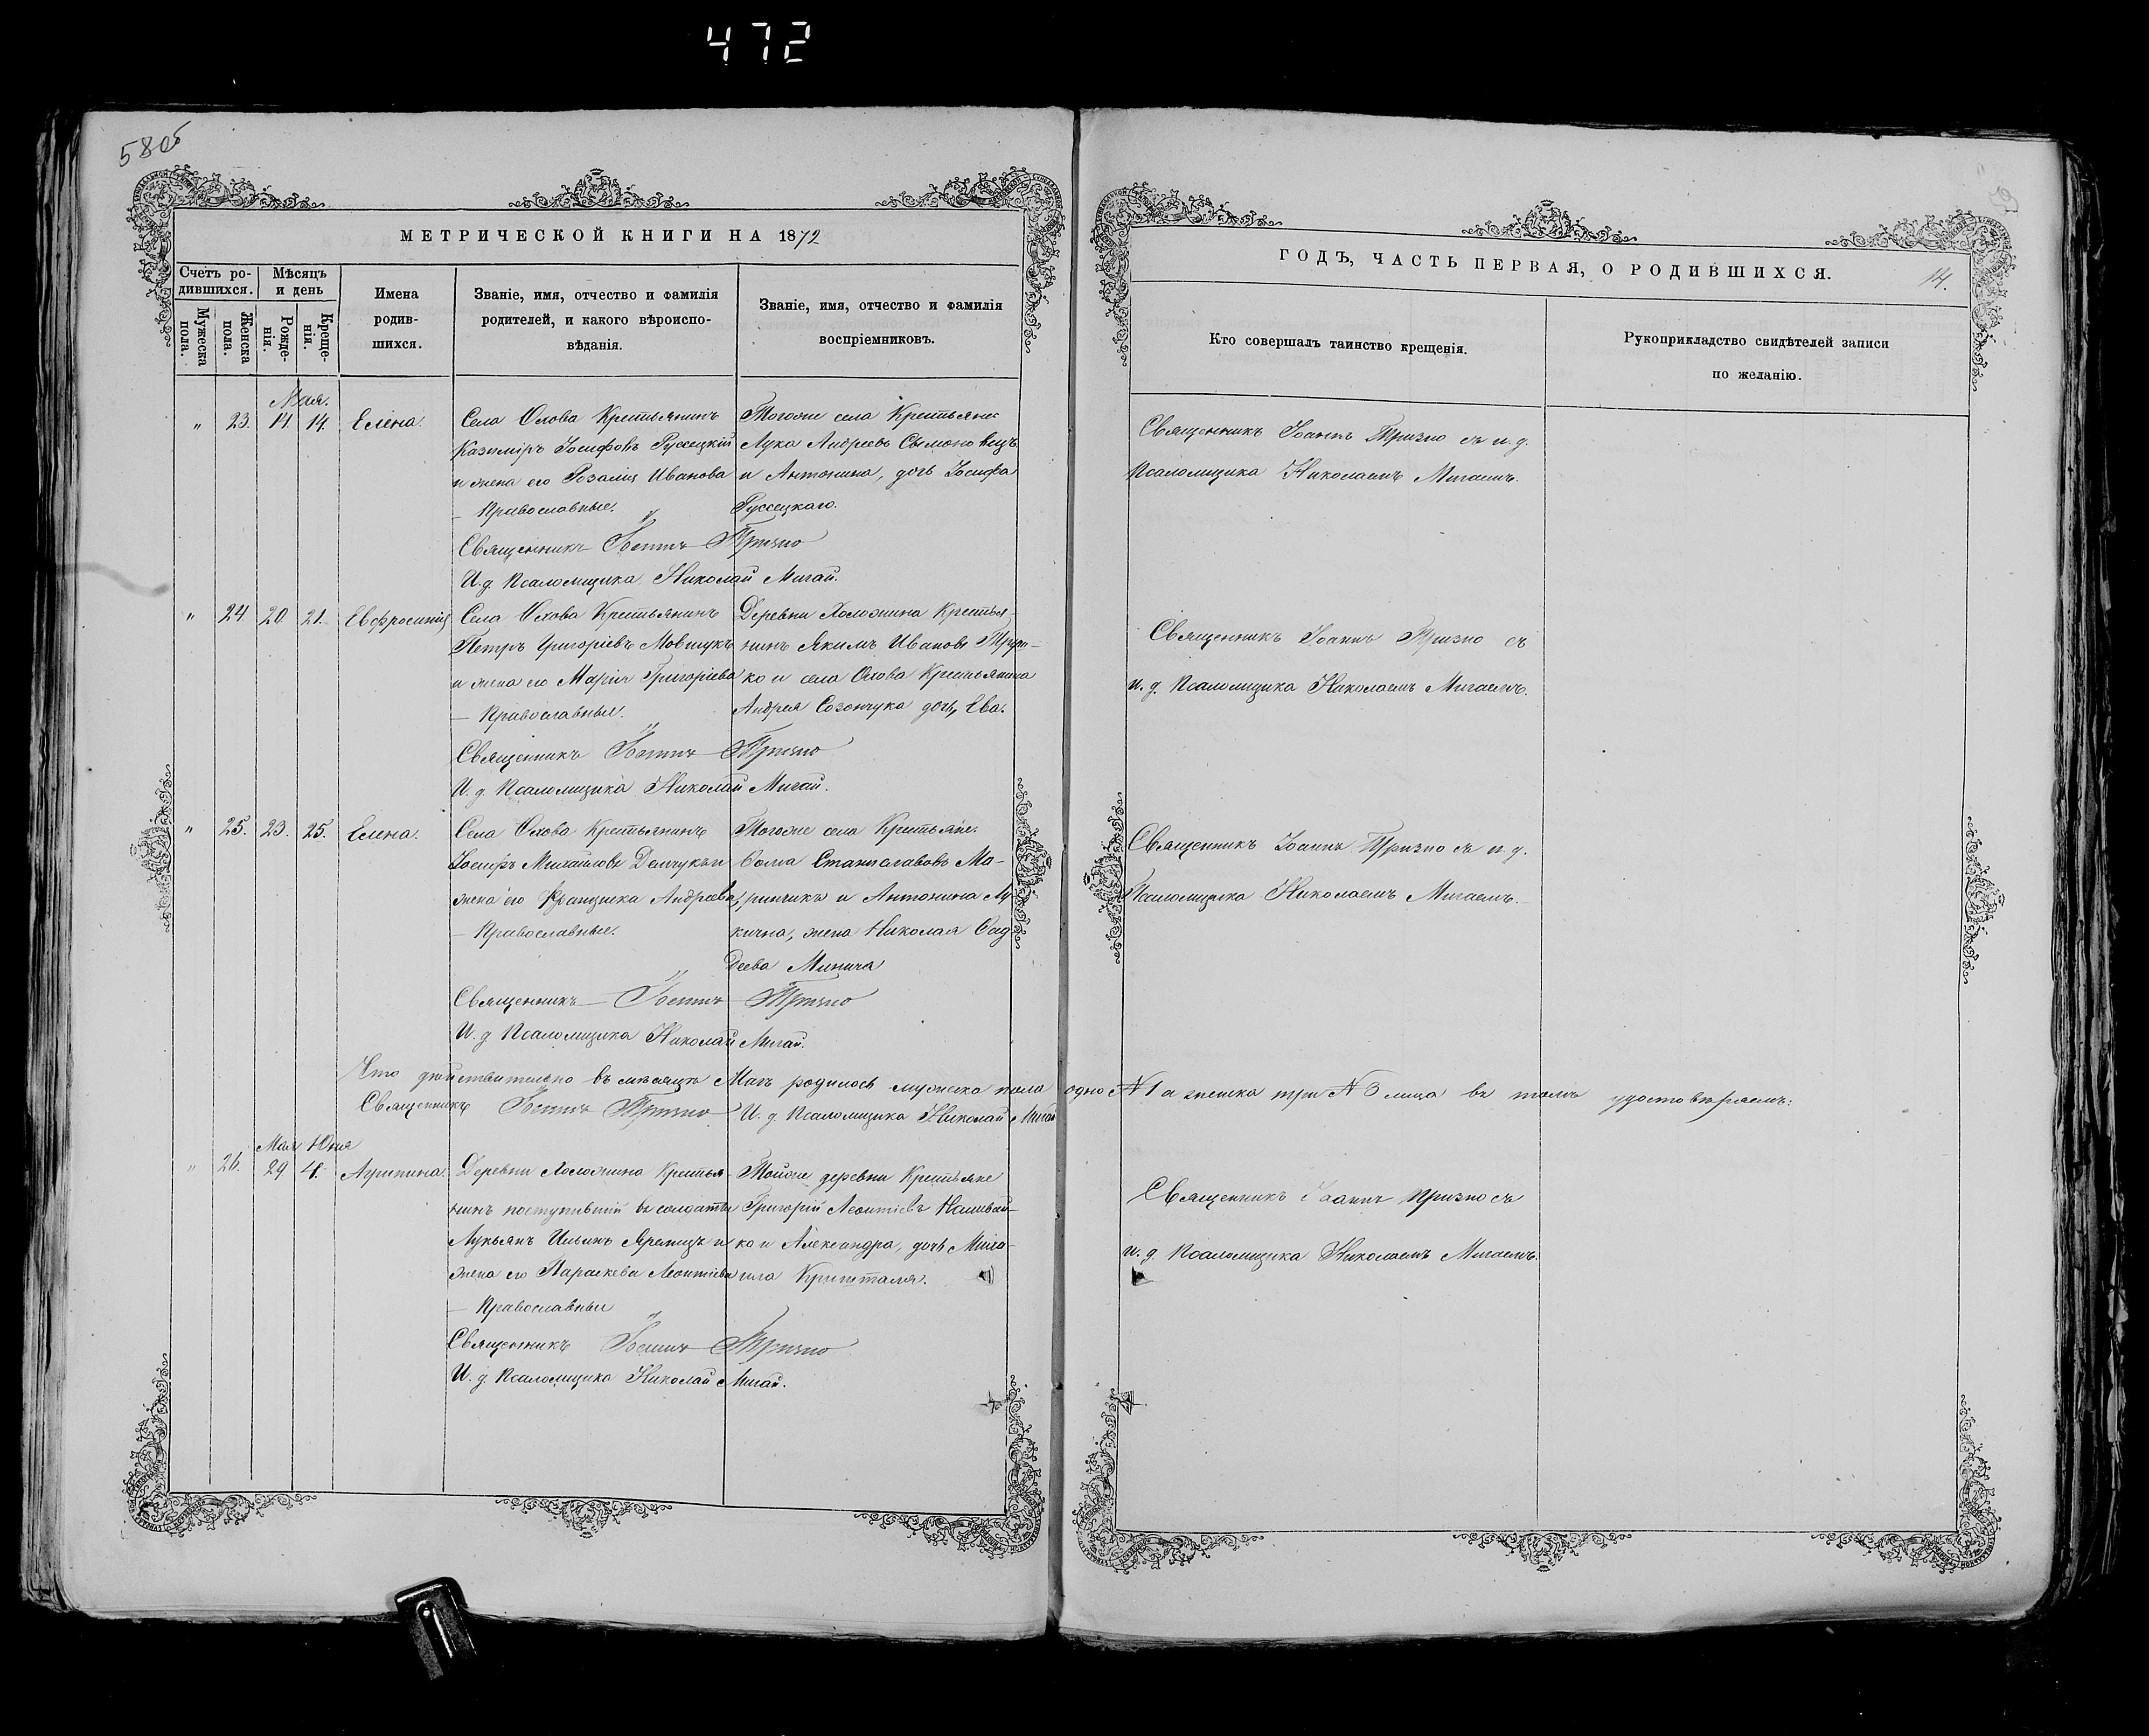 472
580б
МЕТРИЧЕСКОЙ КНИГИ НА 1872
Счетъ ро-
дившихся.
Мѣсяцъ
и день
Мужеска
пола.
Женска
пола.
Рожде-
нія.
Креще-
нія.
Имена
родив-
шихся.
Званіе, имя, отчество и фамилія
родителей, и какого вѣроиспо-
вѣданія.
Званіе, имя, отчество и фамилія
воспріемниковъ.
Мая.
" 23. 14. 14. Елена. Села Охова Крестьянинъ Тогоже села Крестьяне
Казиміръ Іосифовъ Руссецкій Лука Андреевъ Сымоновецъ
и жена его Розалія Иванова и Антонина, дочь Іосифа
— Православные. Руссецкаго.
Священникъ Іоаннъ Тризно
И. д. Псаломщика Николай Мигай.
" 24 20 21. Евфросинія Села Охова Крестьянинъ Деревни Холожина Крестья-
Петръ Григоріевъ Мовчукъ нинъ Якимъ Ивановъ
и жена его Марія Григоріева ко и села Охова Крестьянина
— Православные. Андрея Созончука дочь, Ева.
Священникъ Іоаннъ Тризно
И. д. Псаломщика Николай Мигай.
" 25. 23. 25. Елена. Села Охова Крестьянинъ Тогоже села Крестьяне.
Іосифъ Михайловъ Демчукъ и Ѳома Станиславовъ Ма-
жена его Францишка Андреева, ринчикъ и Антонина Лу
— Православные. кична, жена Николая Ѳад
деева Минича
Священникъ — Іоаннъ Тризно
И. д Псаломщика Николай Мигай.
Что дѣйствительно въ мѣсяцѣ Маѣ родилось мужеска пола одно №1 а женска три №3 лица въ томъ удостовѣряемъ:
Священникъ Іоаннъ Тризно И. д. Псаломщика Николай Мигай
Мая Юня
" 26. 29 4. Агрипина. Деревни Холожина Крестья- Тойже деревни Крестьяне
нинъ поступившій въ солдаты Григорій Леонтіевъ Наливай-
Лукьянъ Ильинъ Яремичъ и ко и Александра, дочь Миха-
жена его Параскева Леонтіева ила Кришталя.
— Православные
Священникъ Іоаннъ Тризно
И. д. Псаломщика Николай Мигай.
ГОДЪ, ЧАСТЬ ПЕРВАЯ, О РОДИВШИХСЯ.
14.
Кто совершалъ таинство крещенія.
Рукоприкладство свидѣтелей записи
по желанію.
Священникъ Іоаннъ Тризно съ и. д.
Псаломщика Николаемъ Мигаемъ.
Священникъ Іоаннъ Тризно съ
и. д. Псаломщика Николаемъ Мигаемъ.
Священникъ Іоаннъ Тризно съ и. д.
Псаломщика Николаемъ Мигаемъ.
Священникъ Іоаннъ Тризно съ
и. д. Псаломщика Николаемъ Мигаемъ.